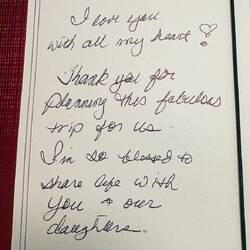 I love you
with all my heart!
Thank you for
planning this fabulous
trip for us.
I'm so blessed to
share life with
you & our
daughters.